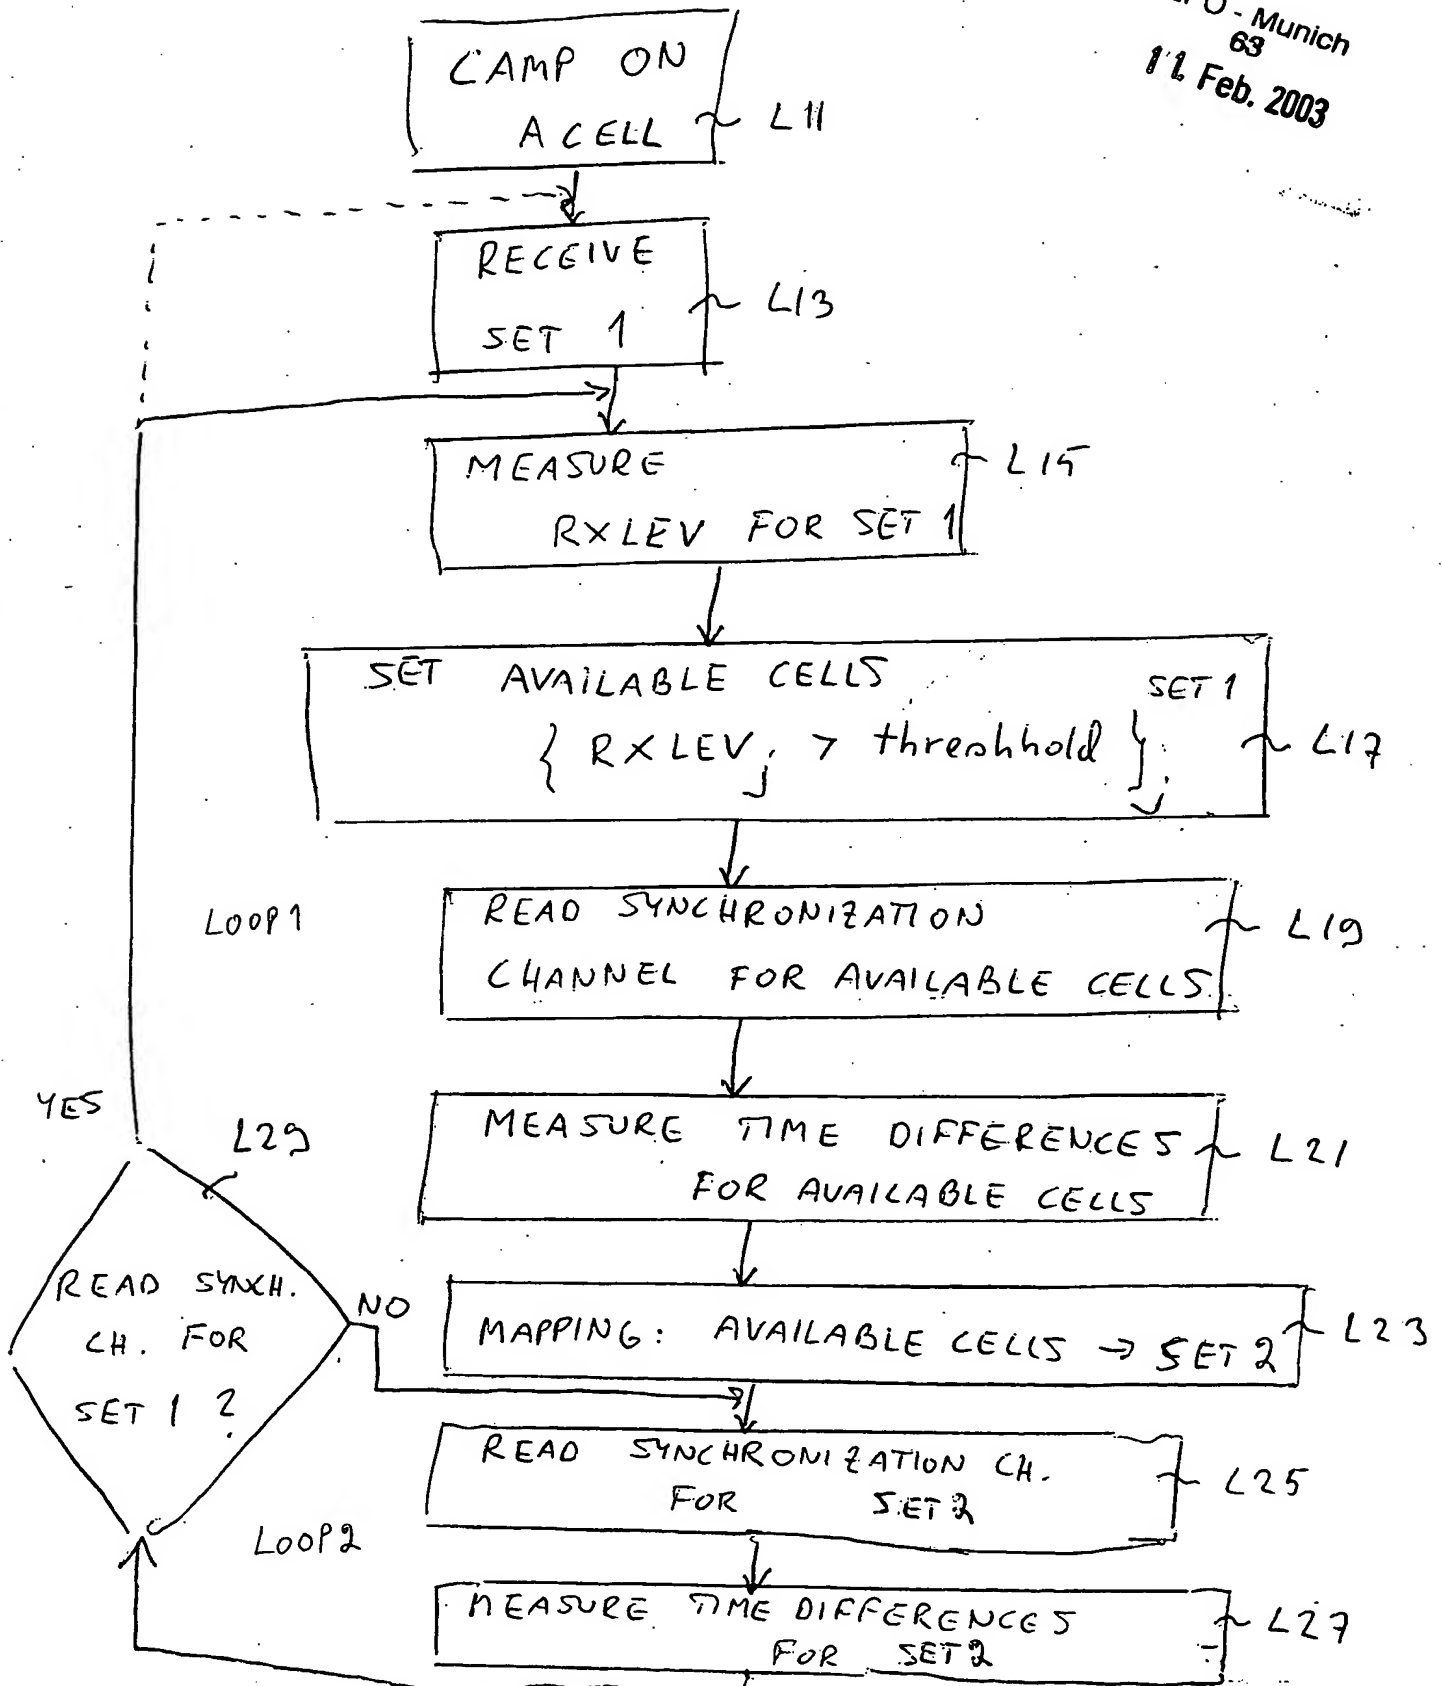 - Munich
63
11. Feb. 2003
CAMP ON
A CELL
L11
RECEIVE
SET 1
L13
MEASURE
RXLEV FOR SET 1
L15
SET AVAILABLE CELLS
SET 1
{ RXLEVj > threshhold }j
L17
READ SYNCHRONIZATION
CHANNEL FOR AVAILABLE CELLS
L19
LOOP1
MEASURE TIME DIFFERENCES
FOR AVAILABLE CELLS
L21
YES
L29
READ SYNCH.
CH. FOR
SET 1 ?
NO
MAPPING: AVAILABLE CELLS → SET 2
L23
READ SYNCHRONIZATION CH.
FOR SET 2
L25
LOOP2
MEASURE TIME DIFFERENCES
FOR SET 2
L27